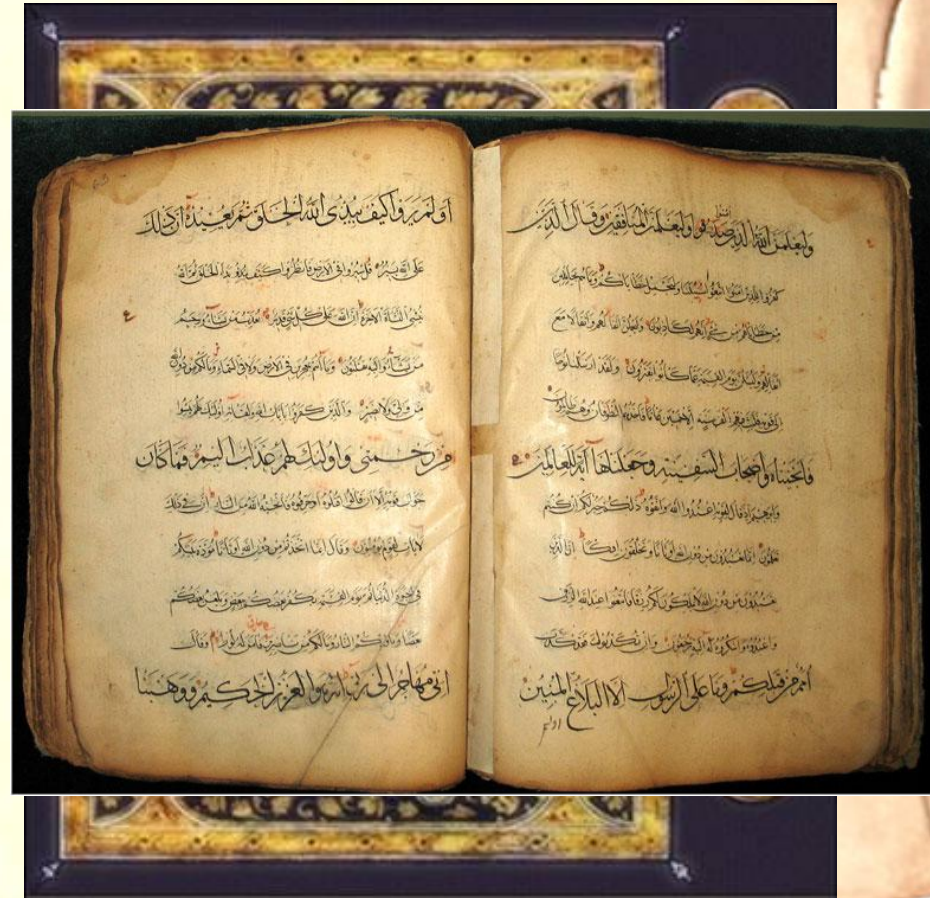 وليعلمن الله الذين صدقوا وليعلمن المنافقين وقال الذين
كفروا للذين امنوا اتبعوا سبيلنا ولنحمل خطاياكم وما هم بحاملين
من خطاياهم من شئ انهم لكاذبون وليحملن اثقالهم واثقالا مع
اثقالهم وليسئلن يوم القيمة عما كانوا يفترون ولقد ارسلنا نوحا
الى قومه فلبث فيهم الف سنة الا خمسين عاما فاخذهم الطوفان وهم ظالمون
فانجيناه واصحاب السفينة وجعلناها آية للعالمين
وابرهيم اذ قال لقومه اعبدوا الله واتقوه ذلكم خير لكم ان كنتم
تعلمون انما تعبدون من دون الله اوثانا وتخلقون افكا ان الذين
تعبدون من دون الله لا يملكون لكم رزقا فابتغوا عند الله الرزق
واعبدوه واشكروا له اليه ترجعون وان تكذبوا فقد كذب
امم من قبلكم وما على الرسول الا البلاغ المبين
اولم
اولم يروا كيف يبدئ الله الخلق ثم يعيده ان ذلك
على الله يسير قل سيروا فى الارض فانظروا كيف بدأ الخلق ثم الله
ينشئ النشأة الاخرة ان الله على كل شئ قدير يعذب من يشاء ويرحم
من يشاء واليه تقلبون وما انتم بمعجزين فى الارض ولا فى السماء وما لكم من دون الله
من ولى ولا نصير والذين كفروا بايات الله ولقائه اولئك يئسوا
من رحمتى واولئك لهم عذاب اليم فما كان
جواب قومه الا ان قالوا اقتلوه او حرقوه فانجيه الله من النار ان فى ذلك
لايات لقوم يؤمنون وقال انما اتخذتم من دون الله اوثانا مودة بينكم
فى الحيوة الدنيا ثم يوم القيمة يكفر بعضكم ببعض ويلعن بعضكم
بعضا وماويكم النار وما لكم من ناصرين فامن له لوط وقال
انى مهاجر الى ربى انه هو العزيز الحكيم ووهبنا